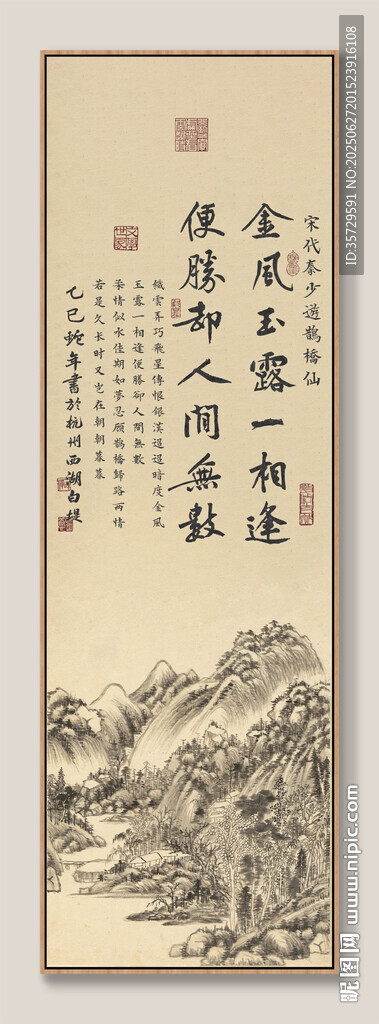 宋代秦少遊鵲橋仙
金風玉露一相逢
便勝却人間無數
纖雲弄巧飛星傳恨銀漢迢迢暗度金風
玉露一相逢便勝卻人間無數
柔情似水佳期如夢忍顾鵲橋歸路两情
若是久长时又岂在朝朝暮暮
乙巳蛇年書於杭州西湖白堤
ID:35729591 NO:20250627201523916108
昵图网 www.nipic.com